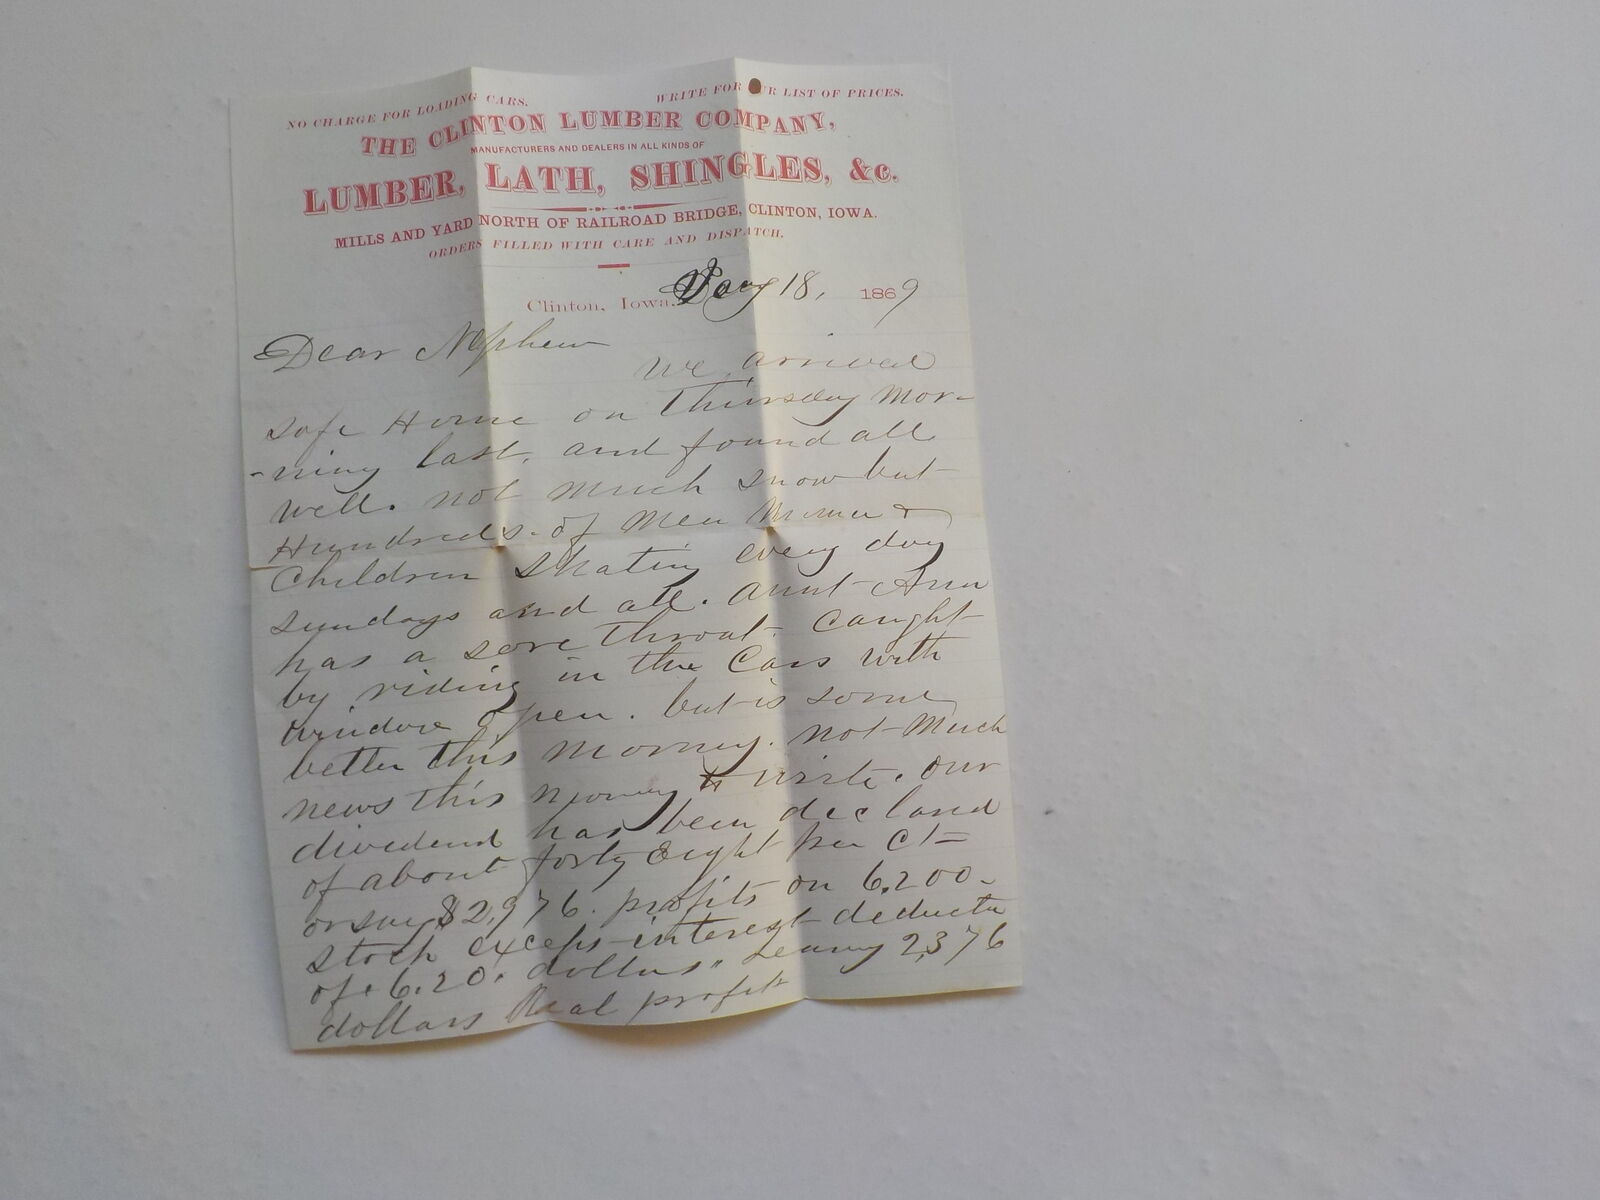 NO CHARGE FOR LOADING CARS. WRITE FOR UR LIST OF PRICES.
THE CLINTON LUMBER COMPANY,
MANUFACTURERS AND DEALERS IN ALL KINDS OF
LUMBER, LATH, SHINGLES, &c.
MILLS AND YARD NORTH OF RAILROAD BRIDGE, CLINTON, IOWA.
ORDERS FILLED WITH CARE AND DISPATCH.
Clinton, Iowa, 18, 1869
Dear Nephew
We arrived
safe Home on Thursday Mor-
-ning last, and found all
well. not much snow but
Hundreds of Men &
Children Skating every day
sundays and all. Aunt Ann
has a sore throat. Caught
by riding in the Cars with
window open. but is some
better this morning. not Much
news this morning to write. Our
dividend has been declared
of about forty Eight per ct=
or say $2,976. profits on 6.200-
stock except interest
of 6.20. dollars" Leaving 2,376
dollars Real profit